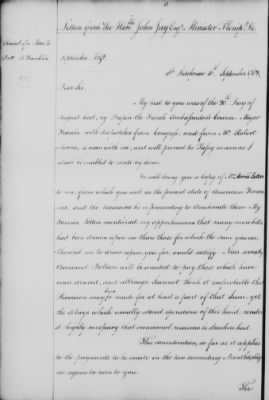 Letters from The Hon.ble John Jay Esq.r Minister Plenip.y &c.
September 1780
St. Ildefonso 10th September 1780
Dear Sir
My last to you was of the 20th Day of
August last, by
with dispatches from Congress, and from Mr. Robert
Morris, is now with me, and will proceed to Passy as soon as I
shall be enabled to write by him.
He will bring you a Copy of Mr. Morris's Letter
to me, from which you will see the present State of American Finan-
ces, and the measures he is pursuing to ameliorate them. My
Former Letter mentioned my apprehensions that many more bills
had been drawn upon me than those for which the sum you au-
thorised me to draw upon you for, would satisfy.
thousand Dollars will be wanted to pay those which have
since arrived, and although I cannot think it improbable that
Provision may here be made for at least a part of that Sum, yet
the delays which usually attend operations of this kind, render
it highly necessary that occasional resources be elsewhere had.
This consideration, so far as it applies
to the payments to be made in the two succeeding Months obliges
me again to recur to you.
The